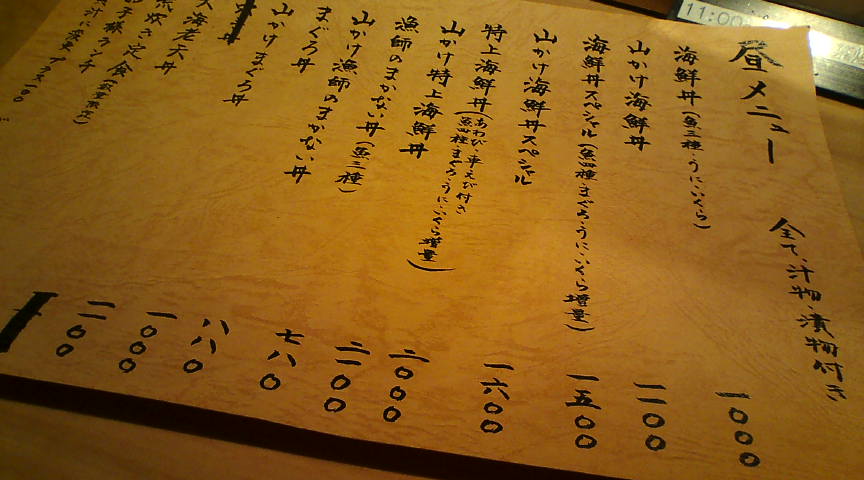 昼メニュー
全て、汁物・漬物付き
海鮮丼(魚三種・うに・いくら) 一〇〇〇
山かけ海鮮丼 一一〇〇
海鮮丼スペシャル(魚四種・まぐろ・うに・いくら増量) 一五〇〇
山かけ海鮮丼スペシャル 一六〇〇
特上海鮮丼(あわび・車えび付き
魚四種・まぐろ・うに・いくら増量) 二〇〇〇
山かけ特上海鮮丼 二一〇〇
漁師のまかない丼(魚三種) 七八〇
山かけ漁師のまかない丼 八八〇
まぐろ丼 一〇〇〇
山かけまぐろ丼 一一〇〇
大海老天丼
炊き定食(数量限定)
子様ランチ
汁に変更プラス一〇〇
11:00